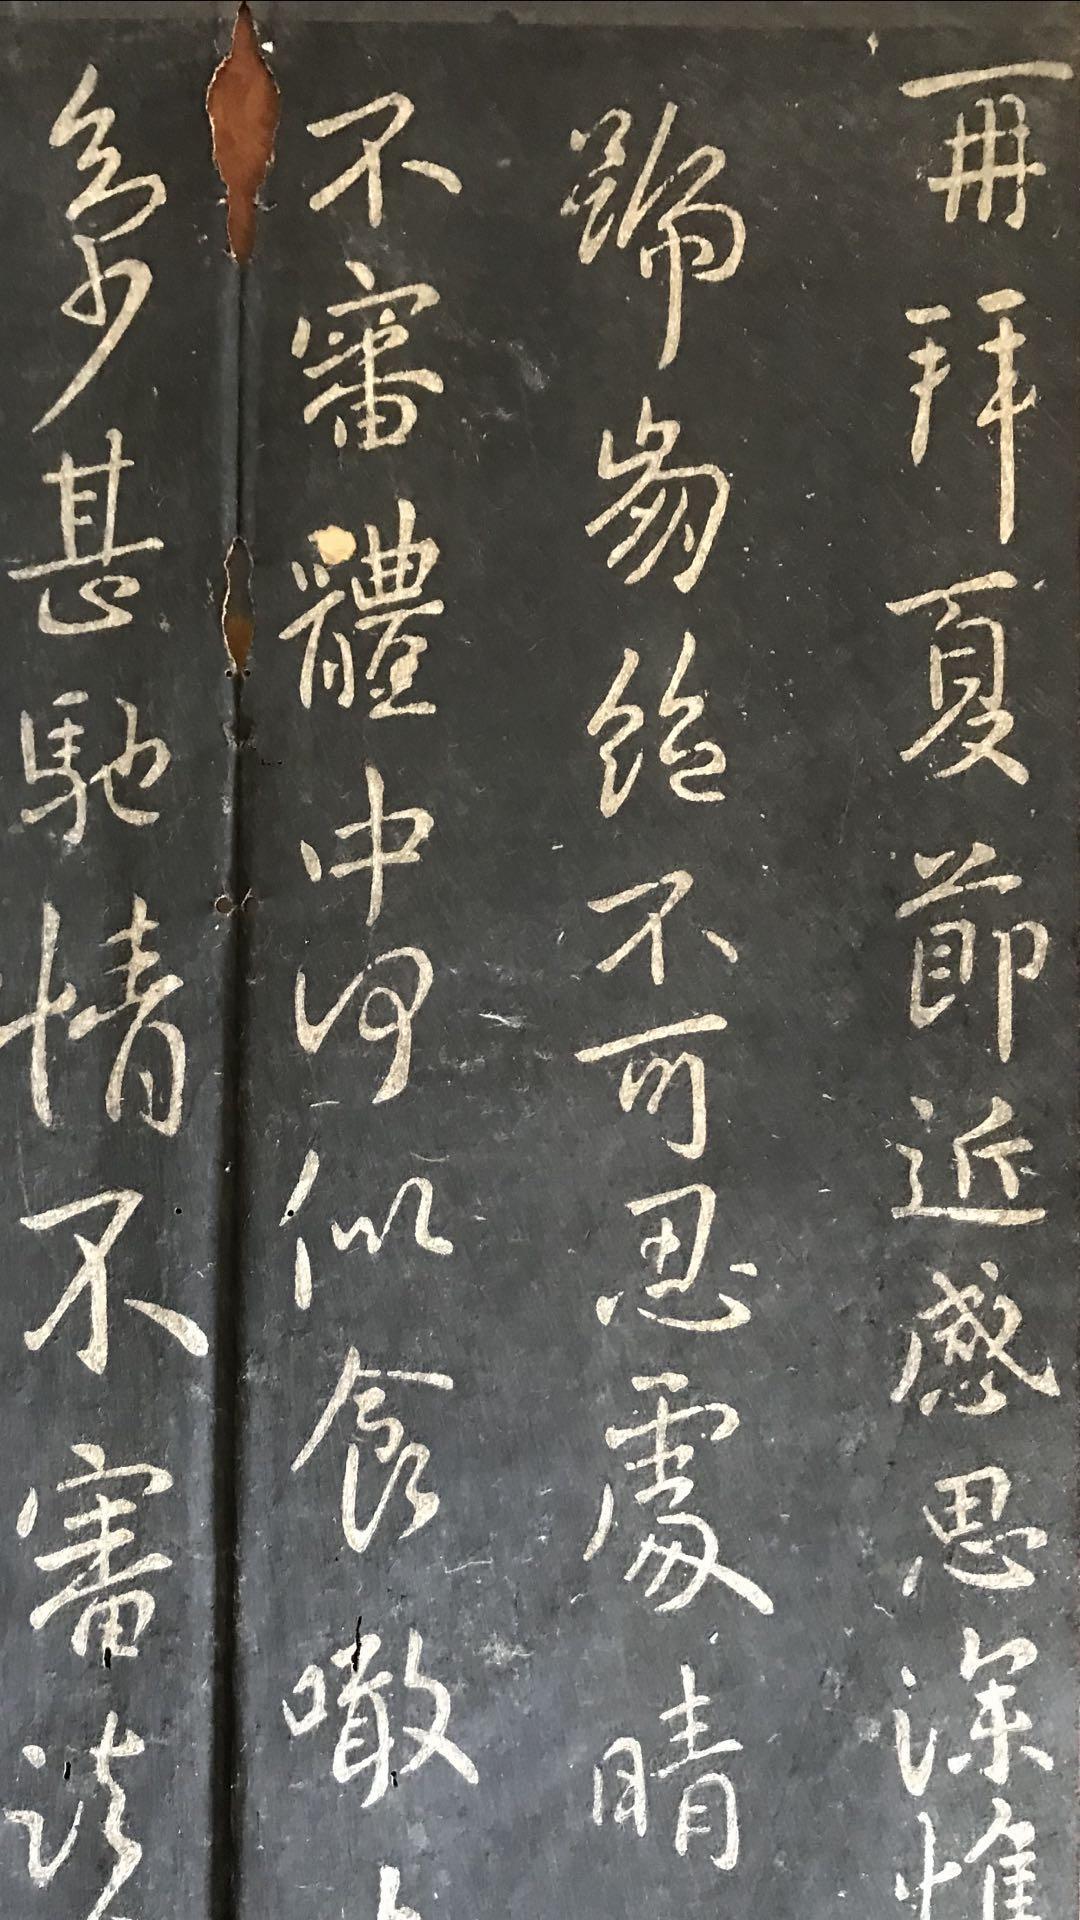 再拜夏節近感思深惟
號崩絕不可忍處晴
不審體中何似食噉
少甚馳情不審